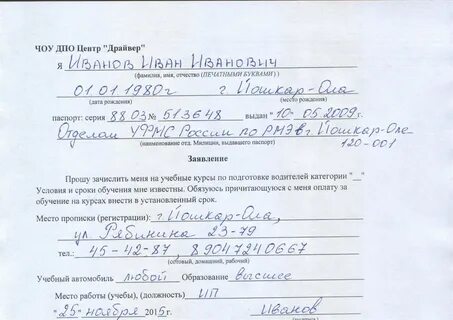 ЧОУ ДПО Центр "Драйвер"
я Иванов Иван Иванович
(фамилия, имя, отчество (ПЕЧАТНЫМИ БУКВАМИ) )
01.01.1980г г. Йошкар-Ола
(дата рождения) (место рождения)
паспорт: серия 88 03 № 513648 выдан "10" 05.2009г.
Отделом УФМС России по РМЭ в г. Йошкар-Оле
(наименование отд. Милиции, выдавшего паспорт) 120-001
Заявление
Прошу зачислить меня на учебные курсы по подготовке водителей категории "__"
Условия и сроки обучения мне известны. Обязуюсь причитающуюся с меня оплату за
обучение на курсах внести в установленный срок.
Место прописки (регистрации): г. Йошкар-Ола,
ул. Рябинина 23-79
тел.: 45-42-87, 89047240667
(сотовый, домашний, рабочий)
Учебный автомобиль любой Образование высшее
Место работы (учебы), (должность) ИП
"25" ноября 2015г. Иванов